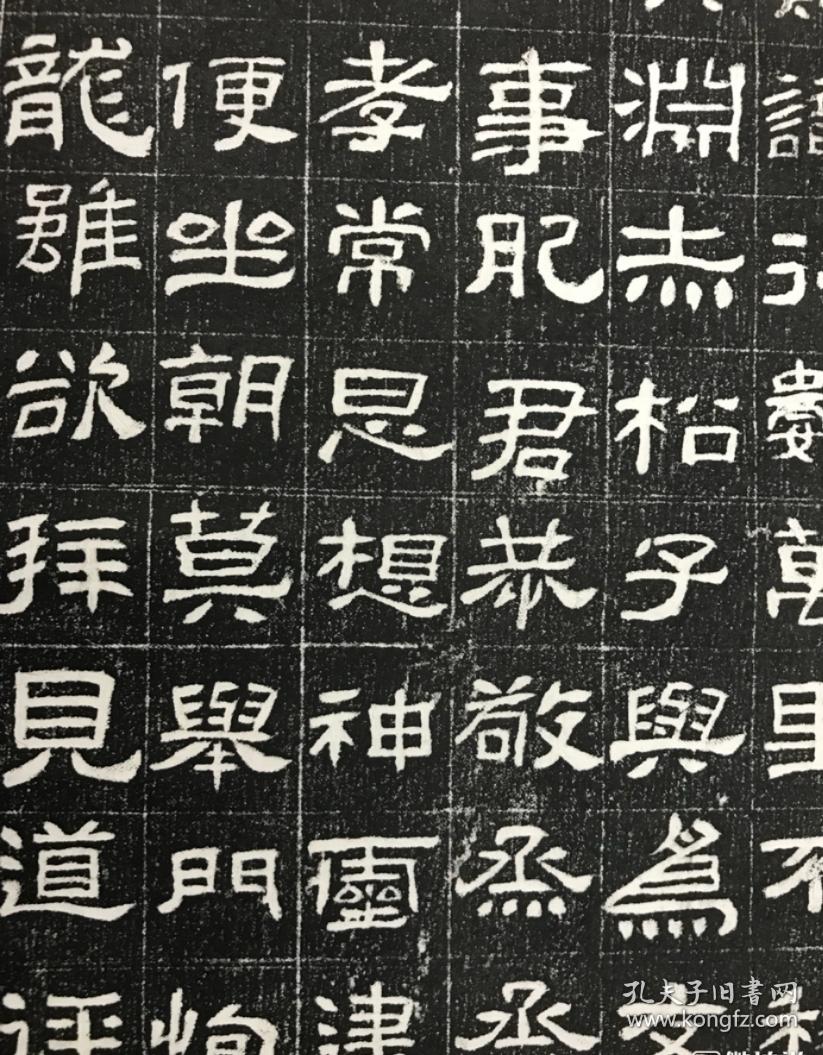 行數萬里不
淵赤松子與爲友
事肥君恭敬烝烝
孝常思想神靈建
便坐朝莫舉門恂
龍雖欲拜見道
孔夫子旧书网
www.kongfz.com